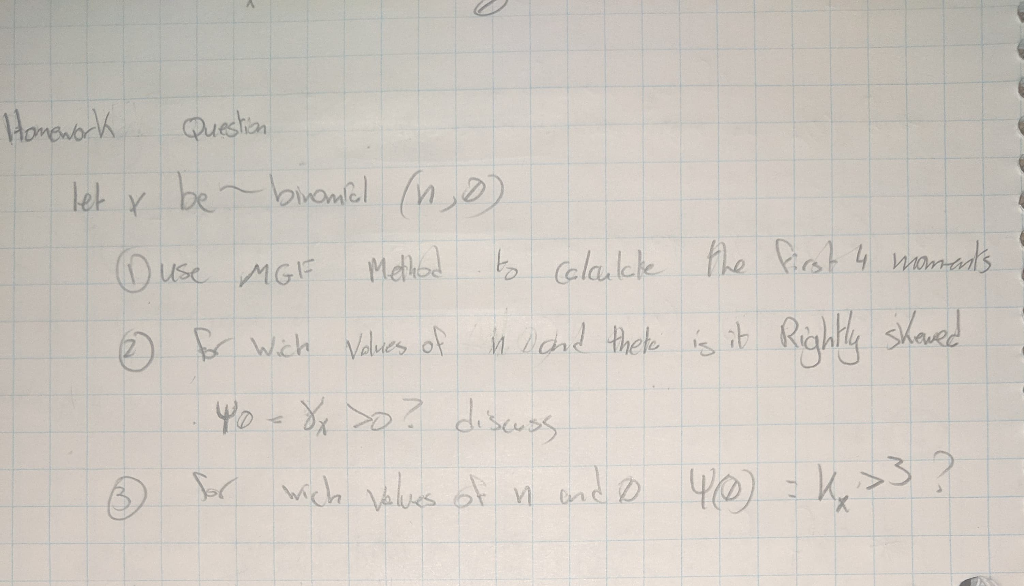 Homework Question
let x be ~ binomial (n, θ)
① use MGF Method to calculate the first 4 moments
② for wich values of n and theta is it Rightly skewed
ψθ = γx >0? discuss
③ for wich values of n and θ ψ(θ) = Kx >3?